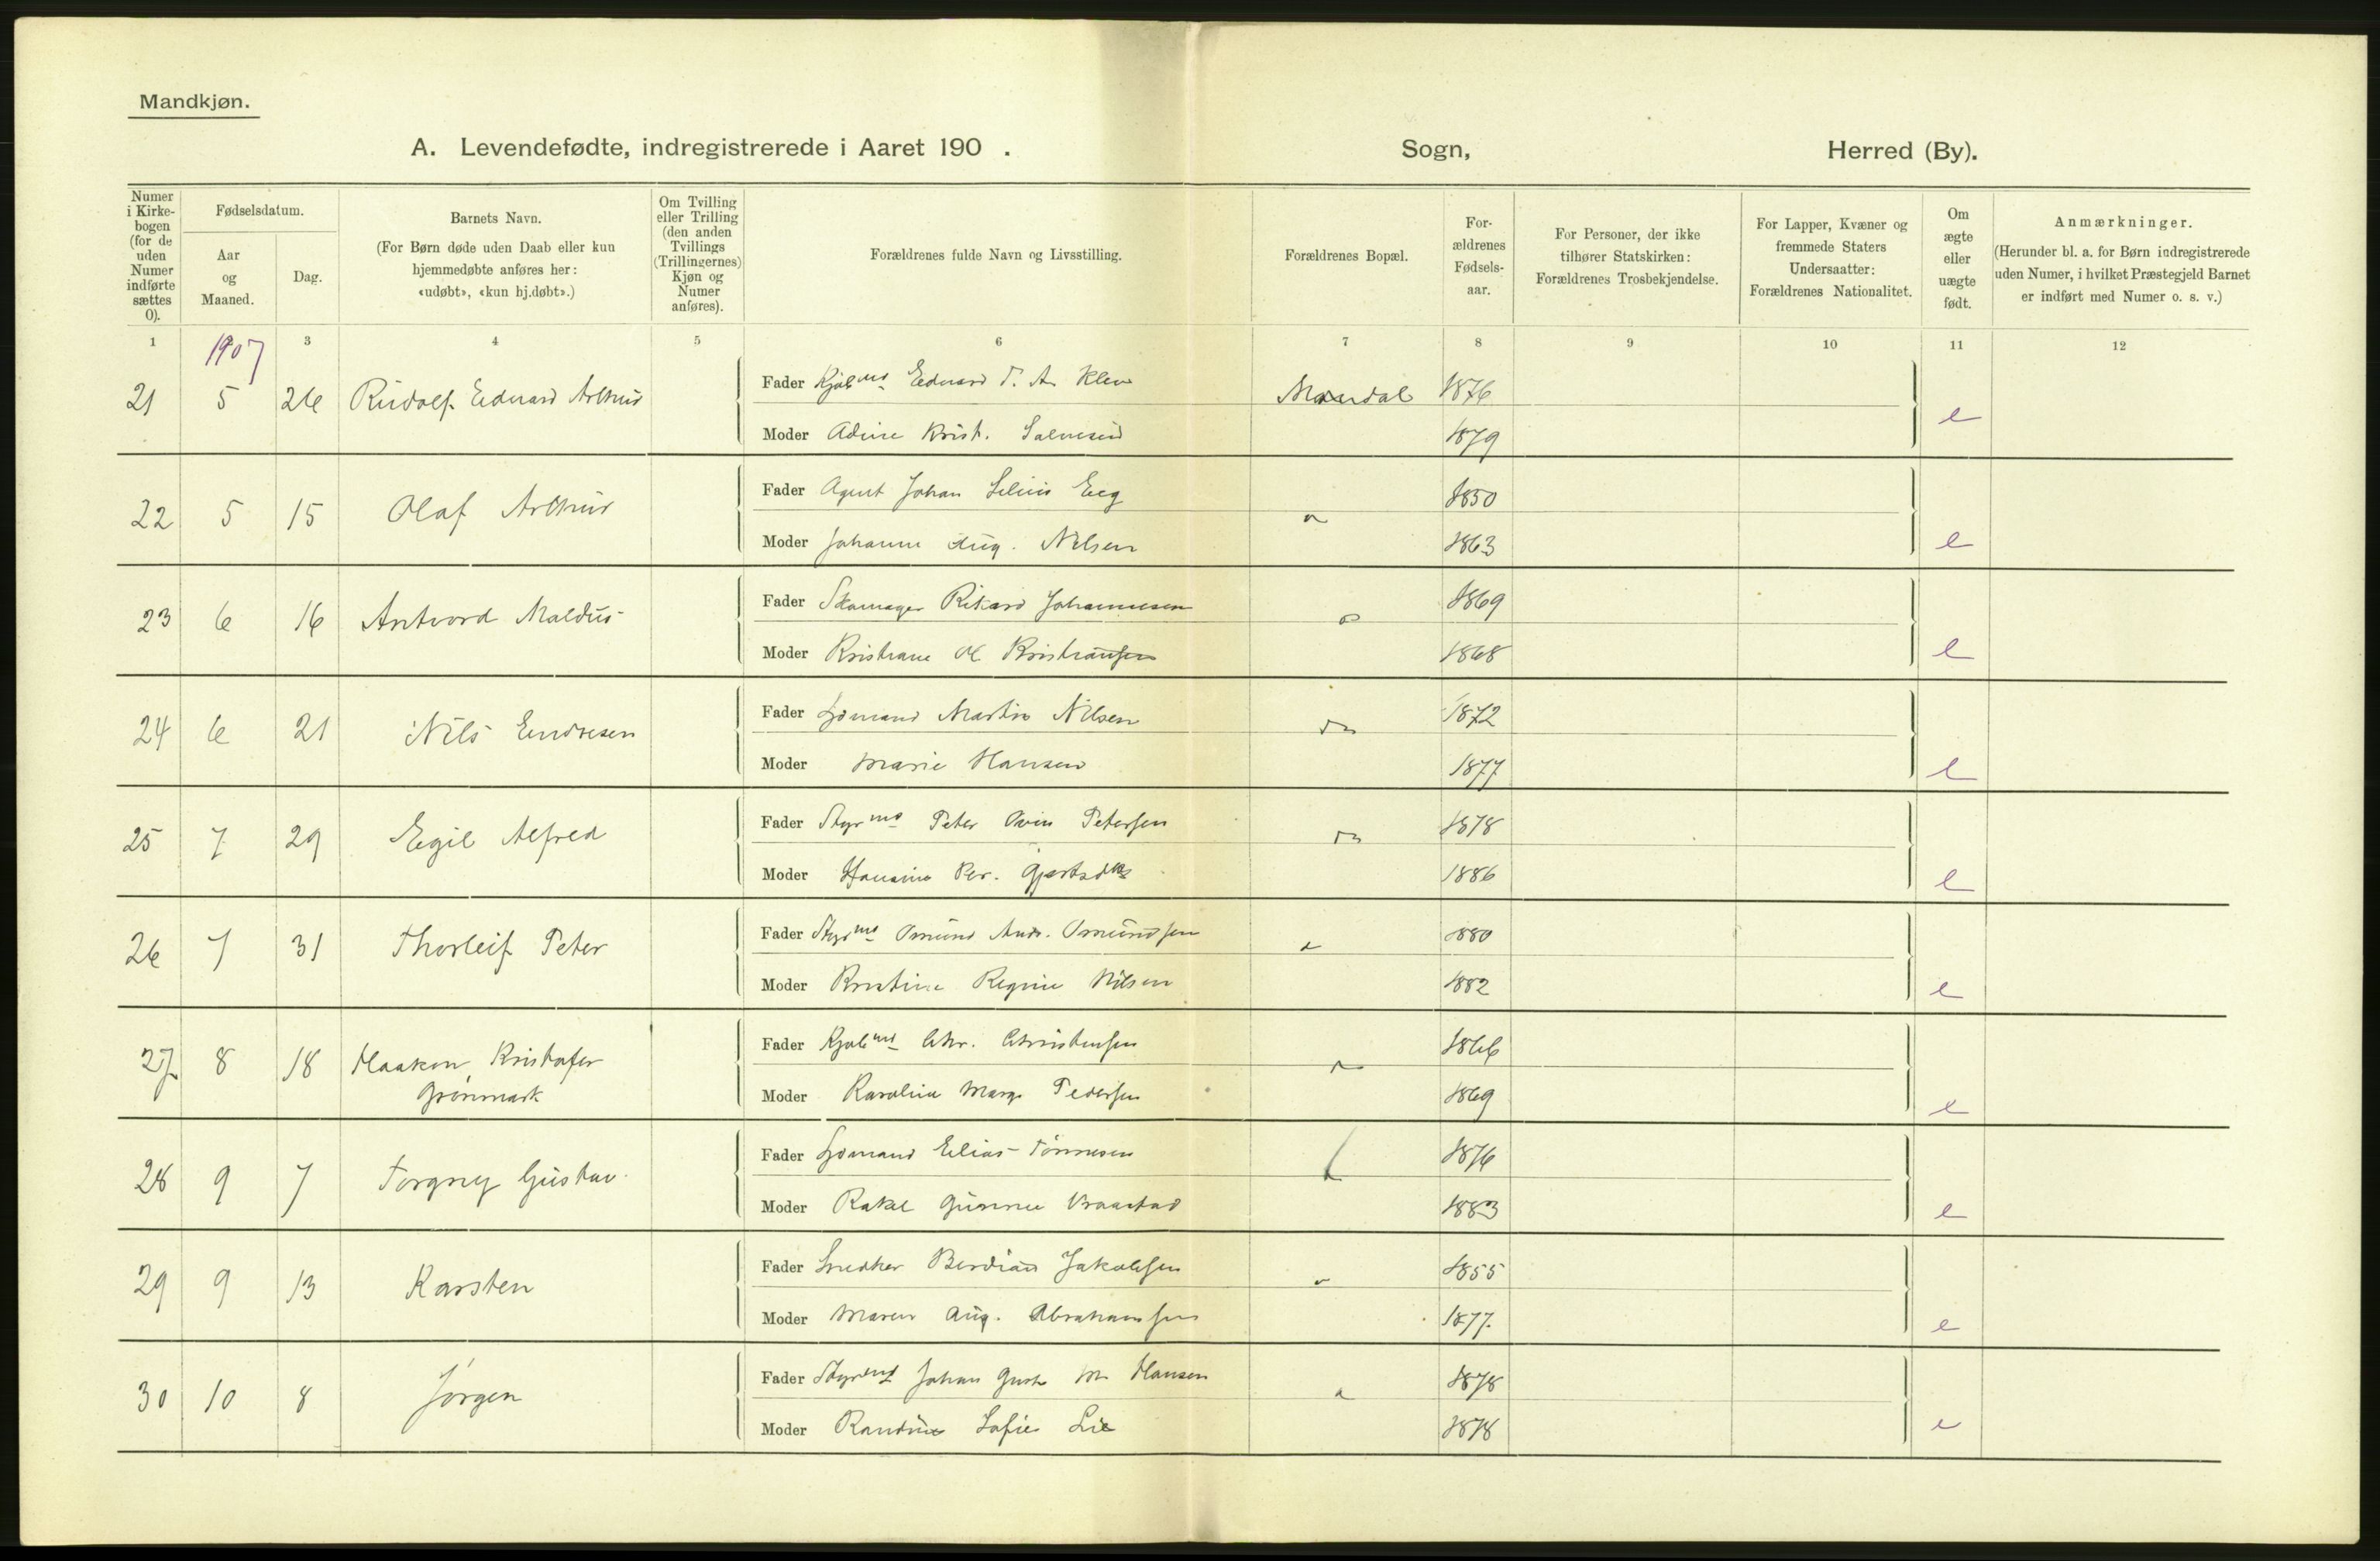 Mandkjøn.
A. Levendefødte, indregistrerede i Aaret 190 . Sogn, Herred (By).
Numer i Kirkebogen (for de uden Numer indførte sættes 0).
Fødselsdatum.
Aar og Maaned.
Dag.
Barnets Navn.
(For Børn døde uden Daab eller kun hjemmedøbte anføres her: «udøbt», «kun hj.døbt».)
Om Tvilling eller Trilling (den anden Tvillings (Trillingernes) Kjøn og Numer anføres).
Forældrenes fulde Navn og Livsstilling.
Forældrenes Bopæl.
For-ældrenes Fødsels-aar.
For Personer, der ikke tilhører Statskirken: Forældrenes Trosbekjendelse.
For Lapper, Kvæner og fremmede Staters Undersaatter: Forældrenes Nationalitet.
Om ægte eller uægte født.
Anmærkninger.
(Herunder bl. a. for Børn indregistrerede uden Numer, i hvilket Præstegjeld Barnet er indført med Numer o. s. v.)
1 3 4 5 6 7 8 9 10 11 12
1907
21 5 26 Rudolf Edvard Arthur Fader Edvard T. A. Klev Mandal 1876
Moder Adine Krist. Salvesen 1879 e
22 5 15 Olaf Arthur Fader Agent Johan Eeg 1850
Moder Johanne Aug. Nilsen 1863 e
23 6 16 Antvord Fader Skomager Rikard Johannesen 1869
Moder Kristiane M Kristiansen 1868 e
24 6 21 Nils Endresen Fader Martin Nilsen 1872
Moder Marie Hansen 1877 e
25 7 29 Egil Alfred Fader Styrmd Peter Petersen 1878
Moder 1886 e
26 7 31 Thorleif Peter Fader Styrmd Omund Andr. Omundsen 1880
Moder Kristine Regine Nilsen 1882 e
27 8 18 Haakon Kristofer Fader Chr. Christensen 1866
Grønmark Moder Karoline Marg. Pedersen 1869 e
28 9 7 Torgny Gustav Fader Elias Tønnesen 1876
Moder Rakel Gunnie 1883 e
29 9 13 Karsten Fader Snedker Berdian Jakobsen 1855
Moder Maren Aug. Abrahamsen 1877 e
30 10 8 Jørgen Fader Styrmd Johan Gust M Hansen 1878
Moder Randine Sofie Lie 1878 e